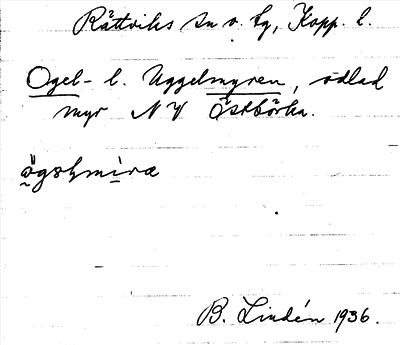 Rättviks sn o. tg, Kopp. l.
Ogel- l. Uggelmyren, odlad
myr NV Östbörka.
B. Lindén 1936.